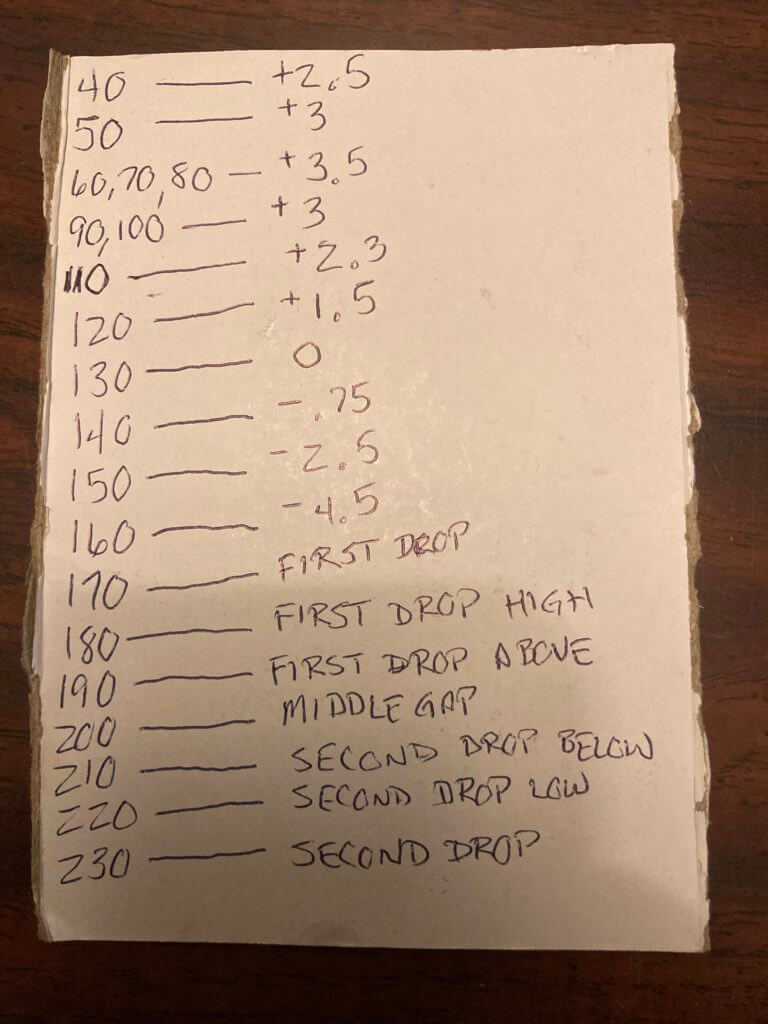 40 — +2.5
50 — +3
60,70,80 — +3.5
90,100 — +3
110 — +2.3
120 — +1.5
130 — 0
140 — -.75
150 — -2.5
160 — -4.5
170 — FIRST DROP
180 — FIRST DROP HIGH
190 — FIRST DROP ABOVE
200 — MIDDLE GAP
210 — SECOND DROP BELOW
220 — SECOND DROP LOW
230 — SECOND DROP